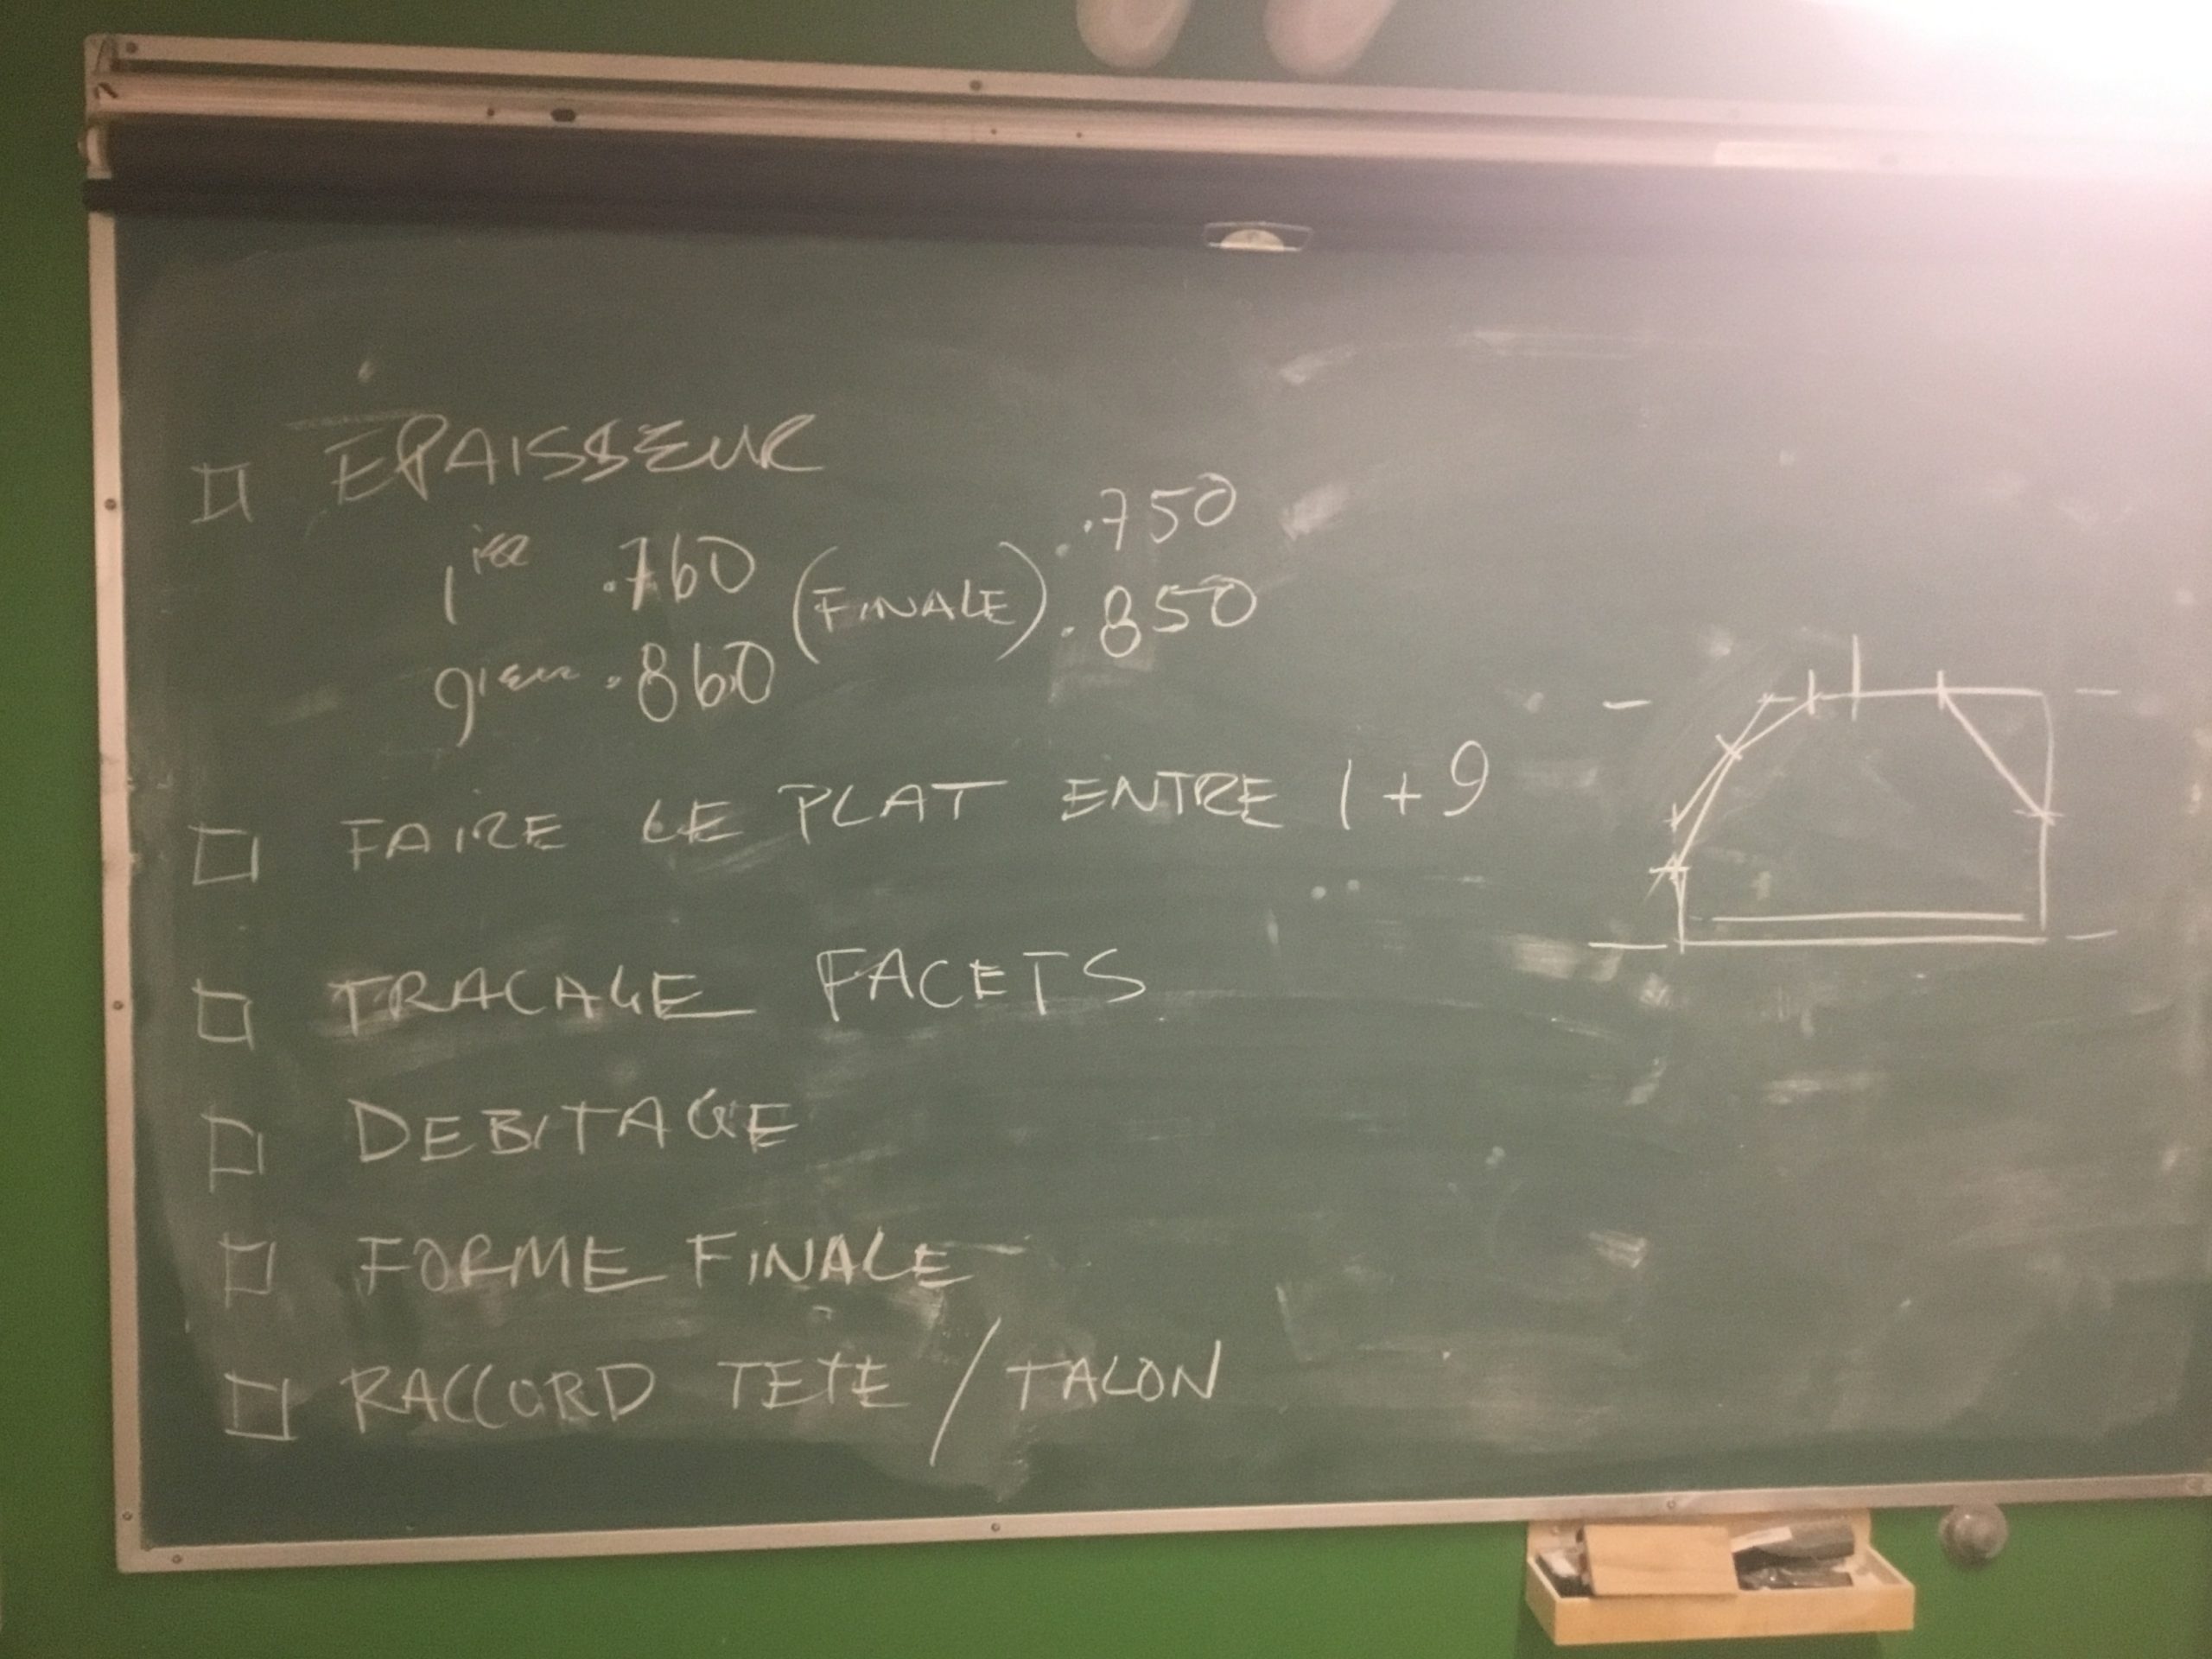 □ EPAISSEUR
1ier .760 (FINALE) .750
9ieme .860 .850
□ FAIRE LE PLAT ENTRE 1 + 9
□ TRACAGE FACETS
□ DEBITAGE
□ FORME FINALE
□ RACCORD TETE / TALON